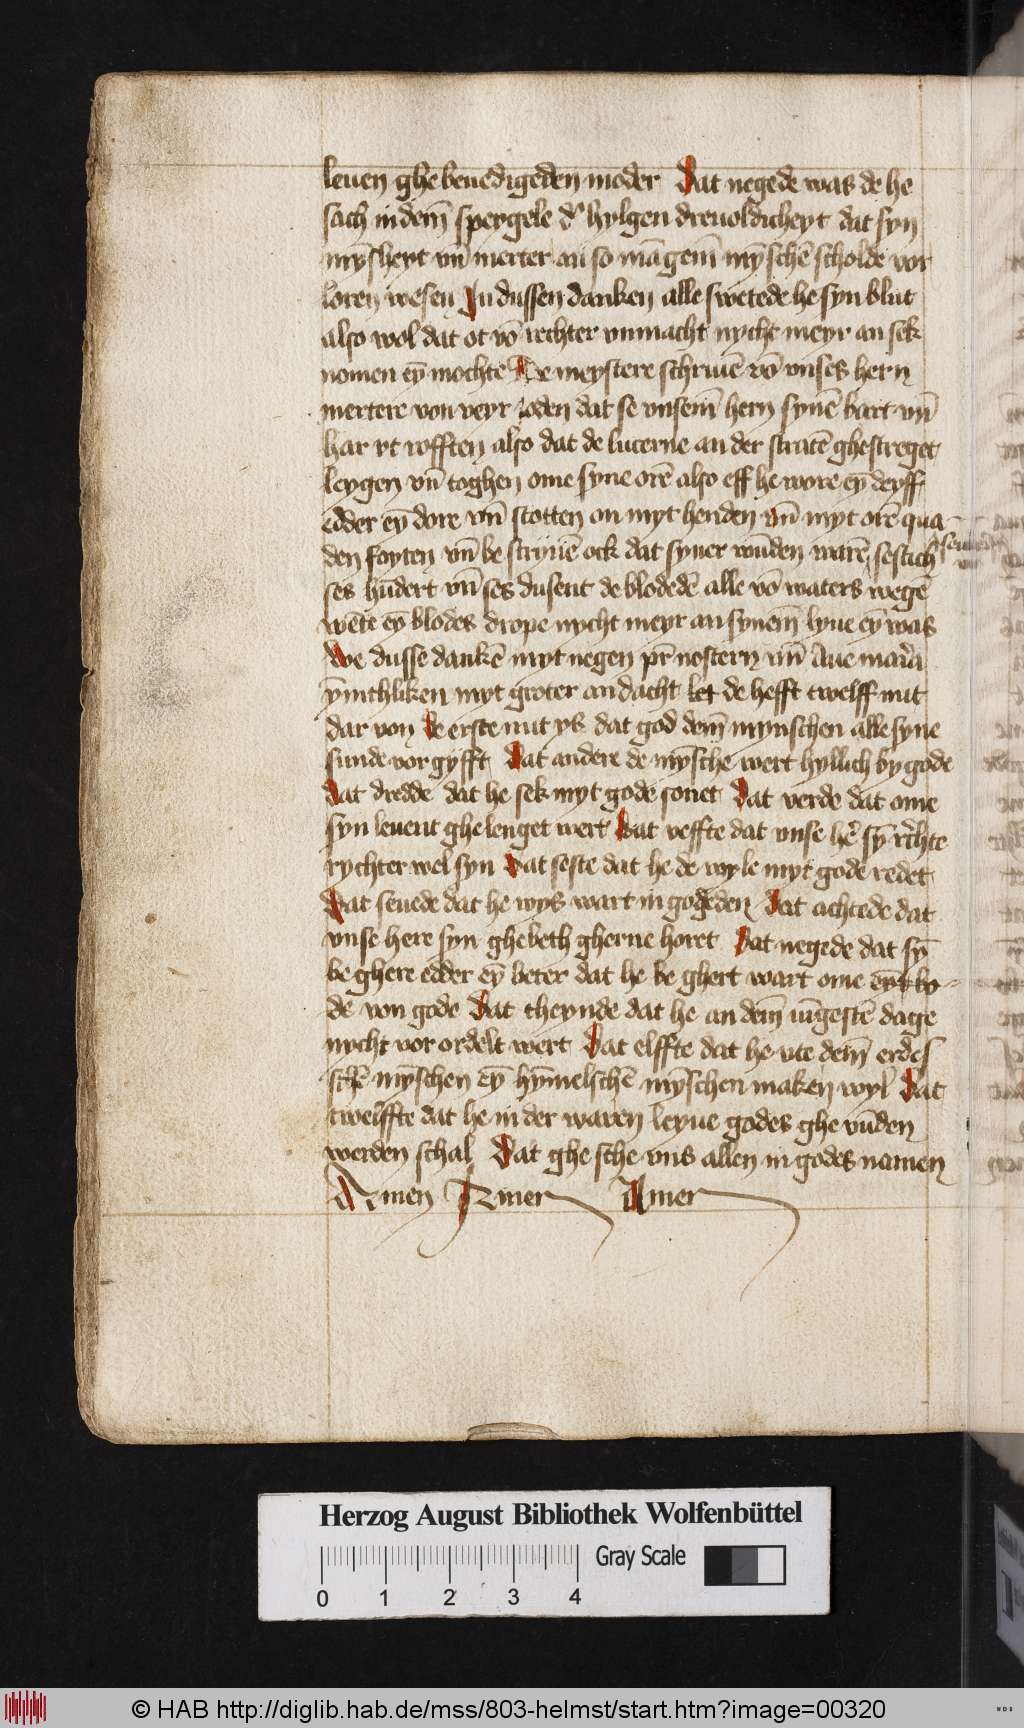 leuen ghe benedigeden moder Dat negede was de he
sach in dem̄ speygele d' hylgen dreuoldicheyt dat syn
my̅sheyt vn̄ merter an so mā̅gem̄ my̅schē scholde vor
loren wesen In dussen danken alle swetede he syn blut
also wol dat ot vō rechter vnmacht nycht meyr an sek
nomen ey̅ mochte De meystere schriuē vō vnses hern
mertere von veyr ioden dat se vnsem̄ hern synē bart vn̄
har vt rofften also dat de lucerne an der stratē ghestreget
leygen vn̄ toghen ome syne orē also eff he wore ey̅ deyff
edder ey̅ dore vn̄ stotten on myt henden vn̄ myt orē qua
den foyten vn̄ be scryuē ock dat syner wūden warē sestich
ses hūdert vn̄ ses dusent de blodedē alle vō waters wegē
wēte ey̅ blodes drope nycht meyr an synem̄ lyue ey̅ was
We dusse dankē myt negen pr̄ nostern vn̄ Aue maria
y̅nichliken myt groter andacht let de hefft twelff nut
dar von De erste nut ys dat god dem̄ mynschen alle syne
sunde vor gyfft Dat andere de my̅sche wert hyllich by gode
Dat dredde dat he sek myt gode sonet Dat verde dat ome
syn leuent ghe lenget wert Dat veffte dat vnse hē sy̅ rechte
rychter wel syn Dat seste dat he de wyle myt gode redet
Dat seuede dat he wys wart in godeden Dat achtede dat
vnse here syn ghebeth gherne horet Dat negede dat sy̅
be ghere edder ey̅ beter dat he be ghert wart ome
de von gode Dat theynde dat he an dem̄ iūgestē dage
nycht vor ordelt wert Dat elffte dat he vte dem̄ erdes
schē my̅schen ey̅ hy̅melschē my̅schen maken wyl Dat
twelffte dat he in der waren leyue godes ghe vūden
werden schal Dat ghe sche vns allen in godes namen
Amen Amen Amen
Herzog August Bibliothek Wolfenbüttel
Gray Scale
0 1 2 3 4
© HAB http://diglib.hab.de/mss/803-helmst/start.htm?image=00320